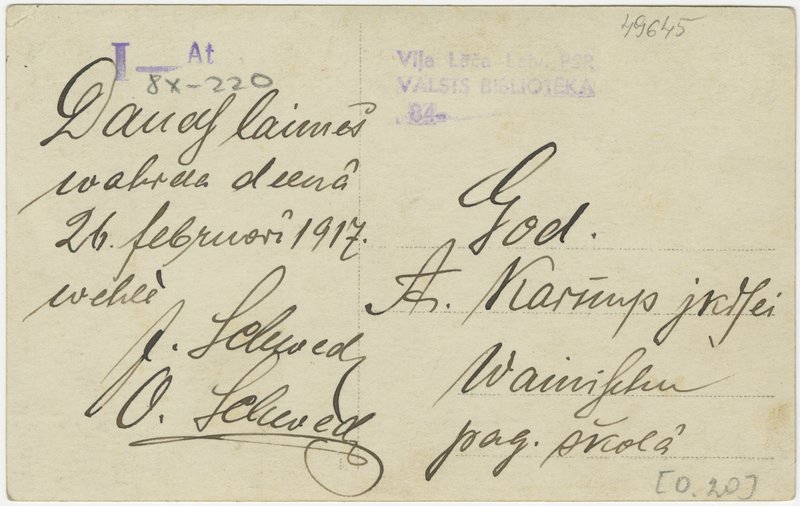 49645
I — At
8x-220
Viļa Lāča Latv. PSR
VALSTS BIBLIOTĒKA
84-
Daudſ laimes
wahrda deenâ
26. februarî 1917.
wehlê
J. Schwedz
O. Schwedz
God.
A. Karump jkdſei
Wainiſchu
pag. školâ
[0.20]